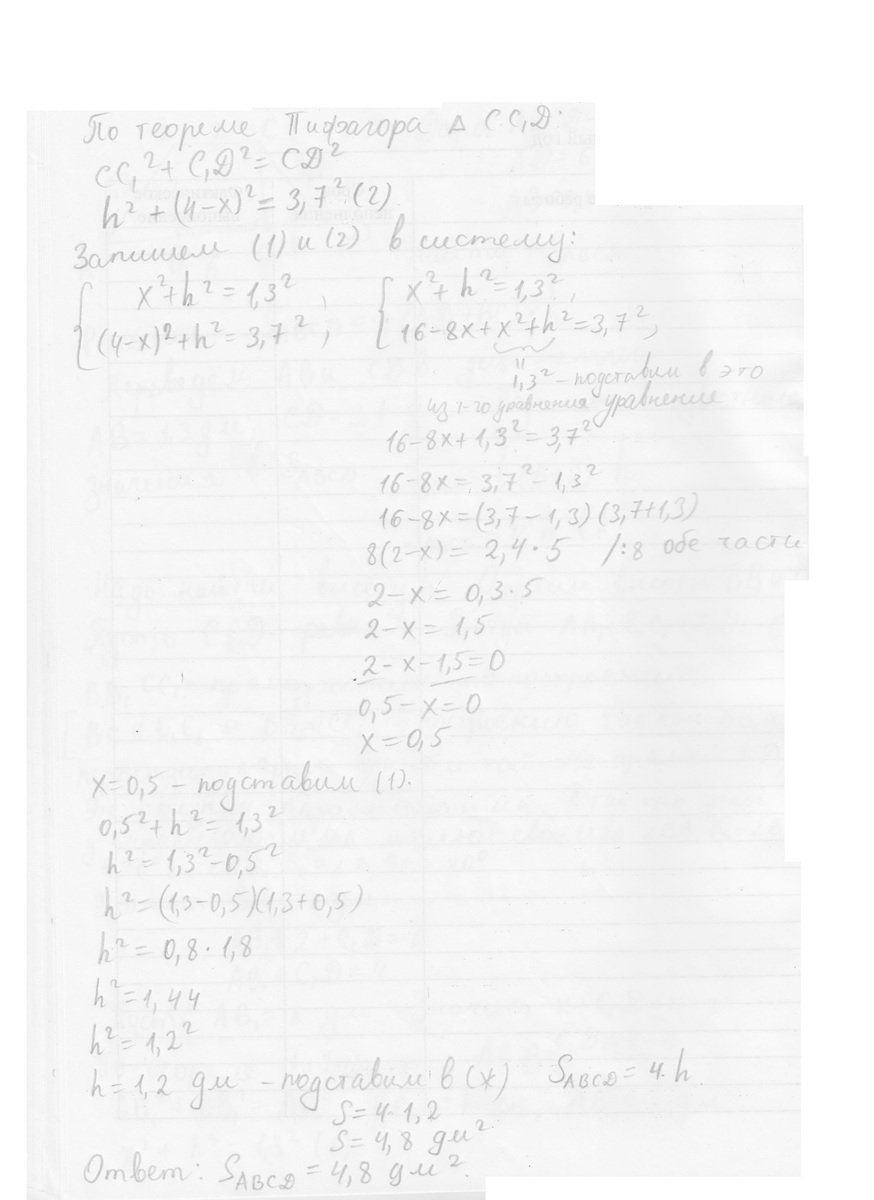 По теореме Пифагора Δ CC₁D:
CC₁² + C₁D² = CD²
h² + (4-x)² = 3,7² (2)
Запишем (1) и (2) в систему:
{ x² + h² = 1,3²
(4-x)² + h² = 3,7² ;
{ x² + h² = 1,3²,
16-8x+x²+h² = 3,7²,
1,3² - подставим в это
из 1-го уравнения уравнение
16-8x+1,3² = 3,7²
16-8x = 3,7² - 1,3²
16-8x = (3,7-1,3)(3,7+1,3)
8(2-x) = 2,4·5 /:8 обе части
2-x = 0,3·5
2-x = 1,5
2-x-1,5=0
0,5-x=0
x=0,5
x=0,5 - подставим (1).
0,5² + h² = 1,3²
h² = 1,3² - 0,5²
h² = (1,3-0,5)(1,3+0,5)
h² = 0,8·1,8
h² = 1,44
h² = 1,2²
h = 1,2 дм - подставим в (*) S_ABCD = 4·h
S = 4·1,2
S = 4,8 дм²
Ответ: S_ABCD = 4,8 дм².